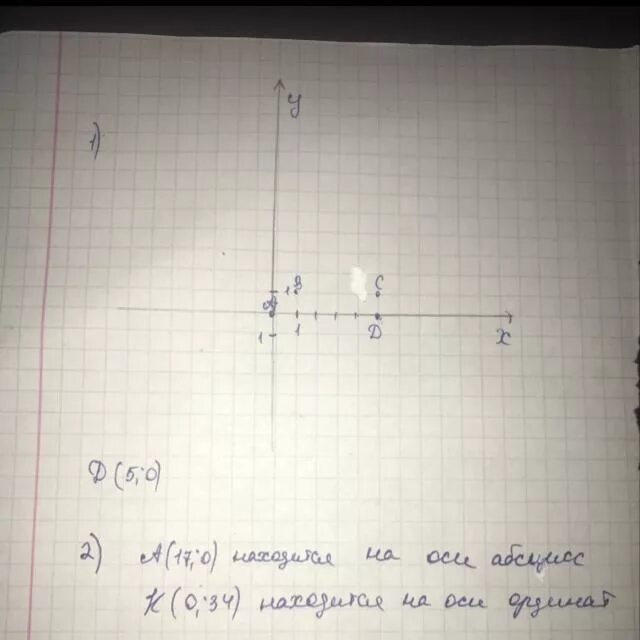 y
1)
1 B C
A
1 1 D x
D(5;0)
2) A(17;0) находится на оси абсцисс
K(0;34) находится на оси ординат